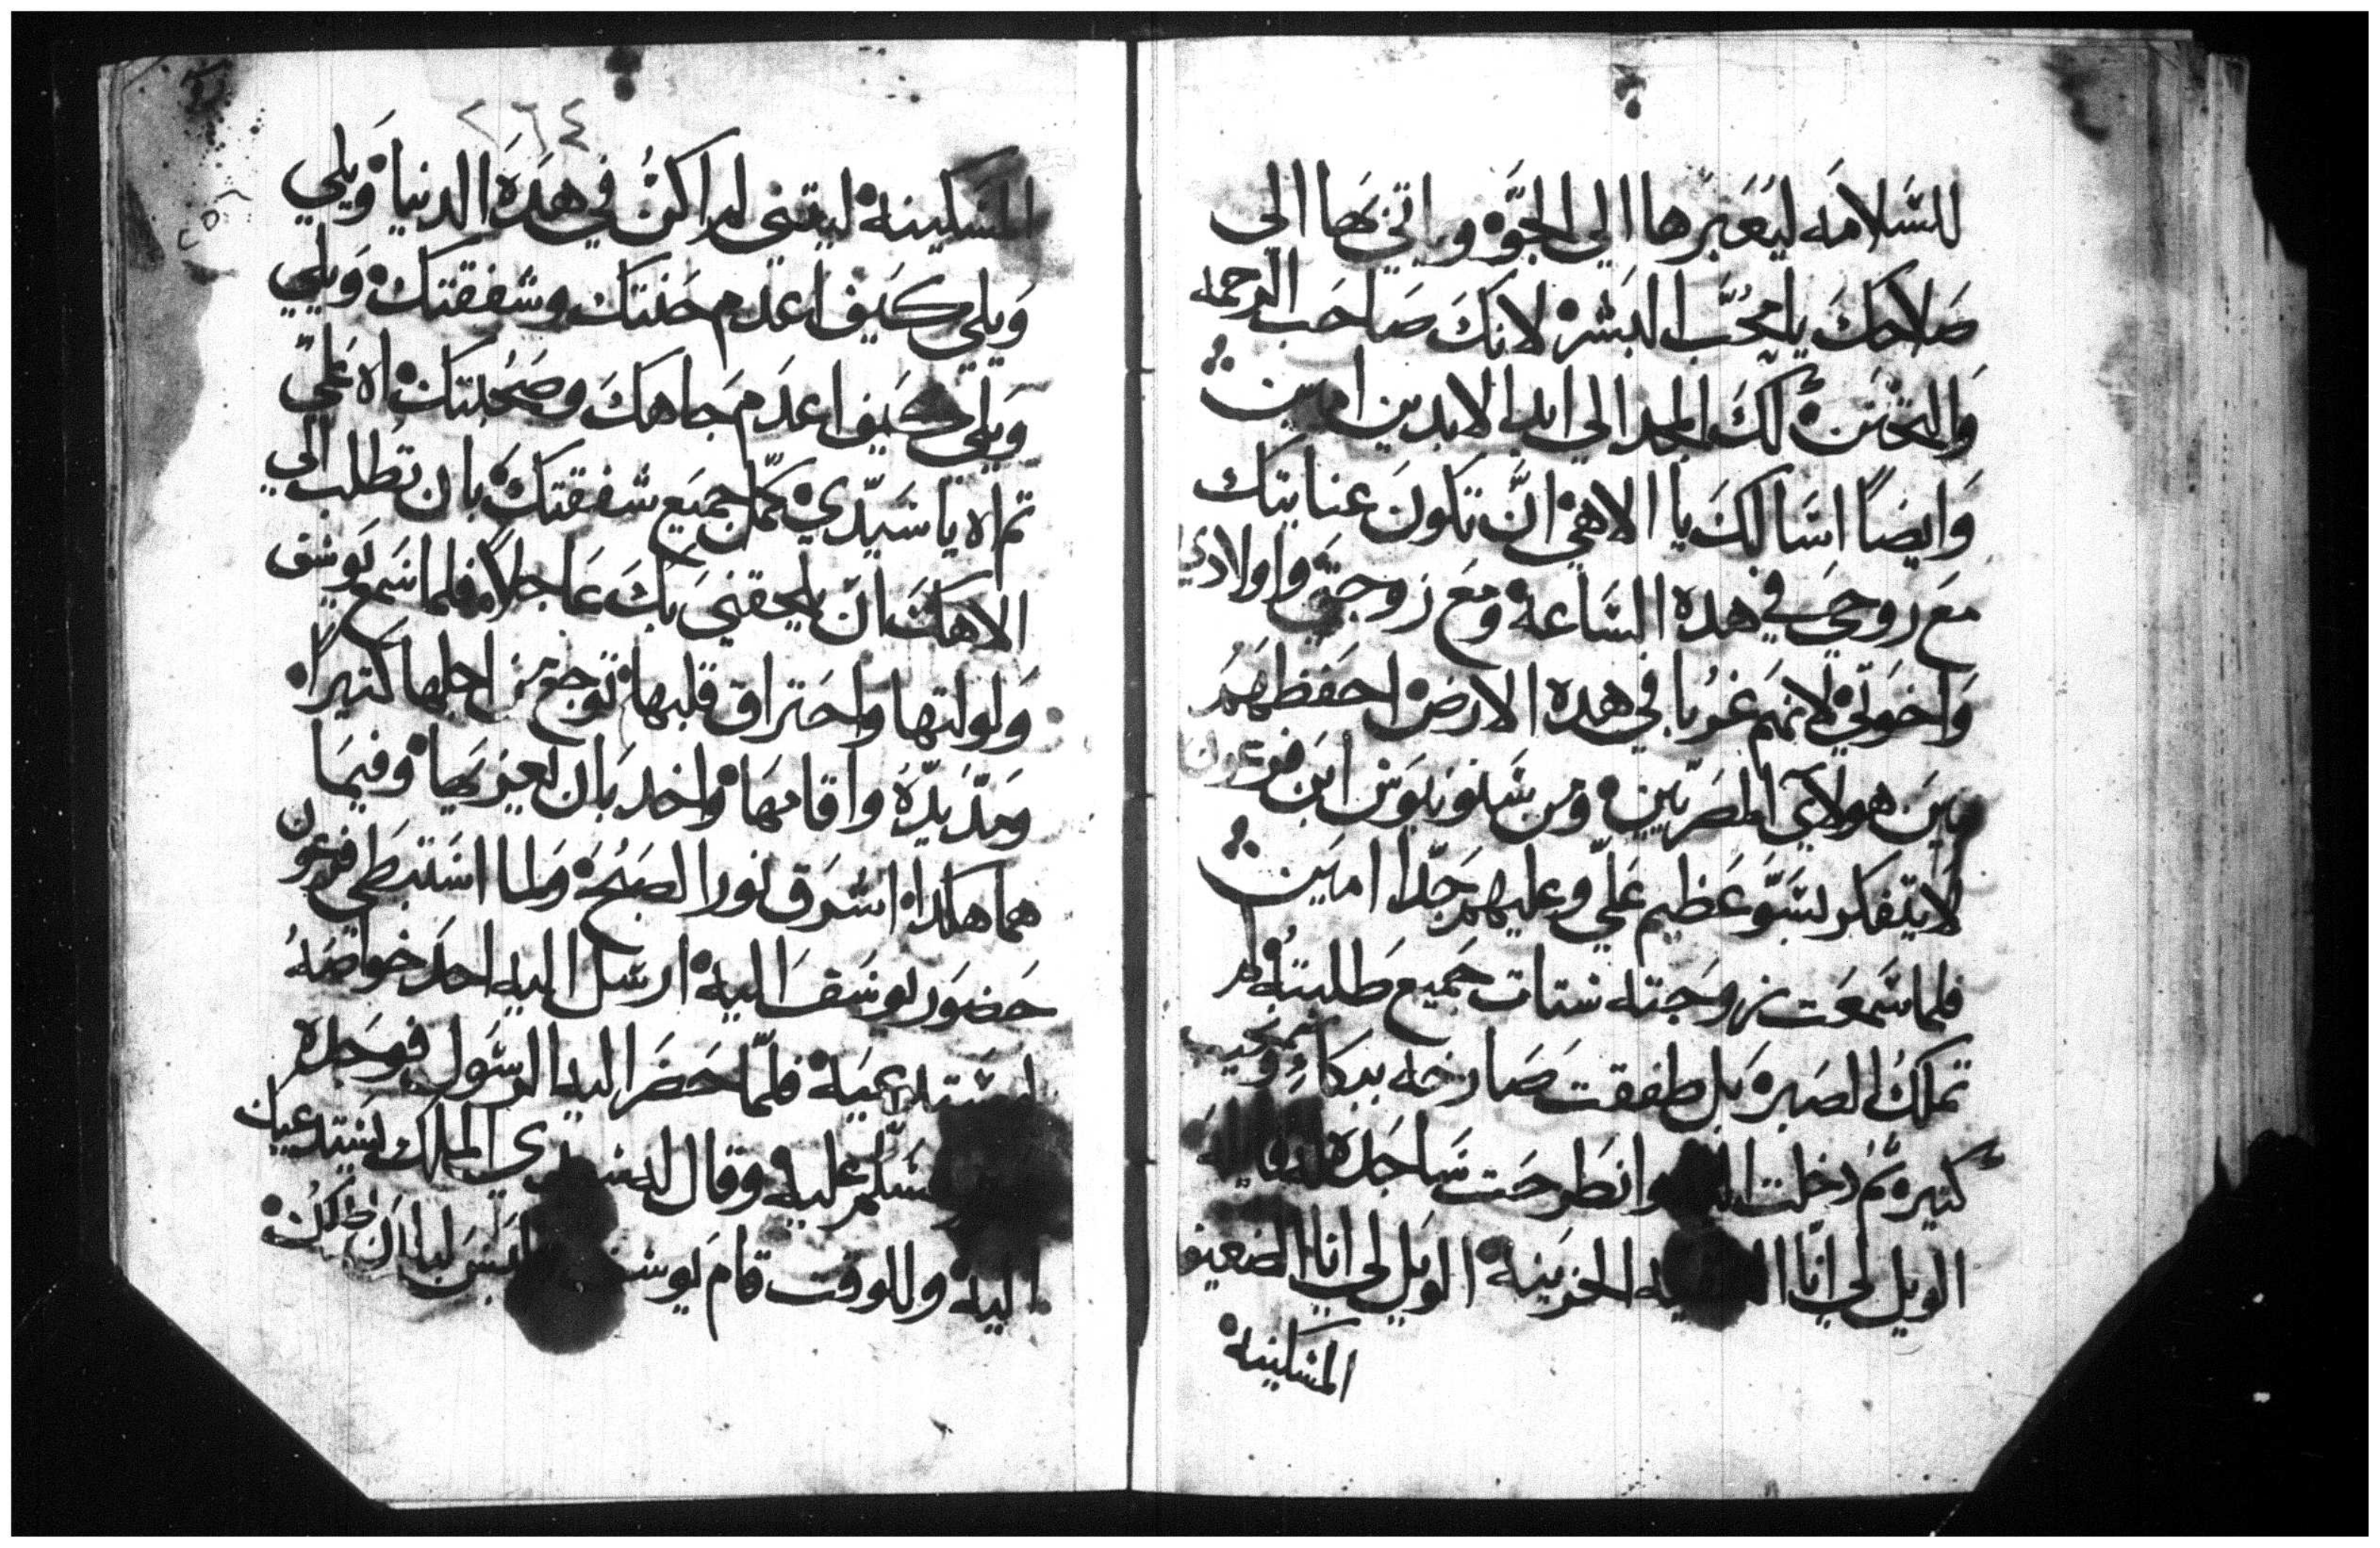 للسَّلامَه ليُعَبرها الي الجوَّة وياتي بَها الى
صَلاحكَ يا محُبَّ البَشر لانكَ صَاحَب الرحمه
وَالتحنَن لكَ المجد الي ابد الابدين امين
وَايضًا اسَالكَ يا الاهي انَّ تكونَ عنايتك
مَع روحيَ في هدة السَّاعة ومَع زوجتيَ واولادي
وَاخوَتي لانهمَ غُربا في هدة الارض احفظهَمُ
مينَ هولاَي المصَريين ومن شلونيوَس ابن فرعون
لايتفكر بسَوَّ عَظيم عَليّ وعليهم جدَّا امَين
فلما سَمعَت زوجته ستات جَميع طَلبتُه لم
تملكُ الصَبر بَل طفقت صَارخه ببكاءٍ ونحيب
كتير ثمَّ دخلت وانطَرحَت سَاجدَة له قايلة
الويل لي انَا الحزينة الويل لي انا الضعيفه
المسَكينة
٢٦٤
المسَكينة ليتني لم اكنُ في هَدَة الدنيا وَيلي
وَيلي كَيف اعدم حَنتك وشفقتك وَيلي
وَيلي كَيف اعدَم جَاهكَ وصَحُبتك اه عَليّ
تم اه يا سَيّدي كمَّل جميَع شفقتكَ بان تُطلب الي
الاهكَ ان يلحقنيَ بكَ عَاجلاً فلما سَمع يَوسَف
وَلولتها واحَتراق قلبها تَوجع من اجلها كتيراً
وَمدّ يَدّهُ واقامهَا واخد بَان يَعيزيَها وفيمَا
هما هاكدا اشَرَق نورا لصَبُحَ وَلما اسَتبَطي فرعون
حَضوَر يوسَف اليه ارسَل اليه احَد خواصَهُ
ليسَتدعيَه فلمّا حَضَر اليه الرسَول فوجَدة
سَلم عليه وقال له سيدي الملك يسَتدعيك
اليه وللوقت قام يَوسَف ولبسَ لباس ملكُ